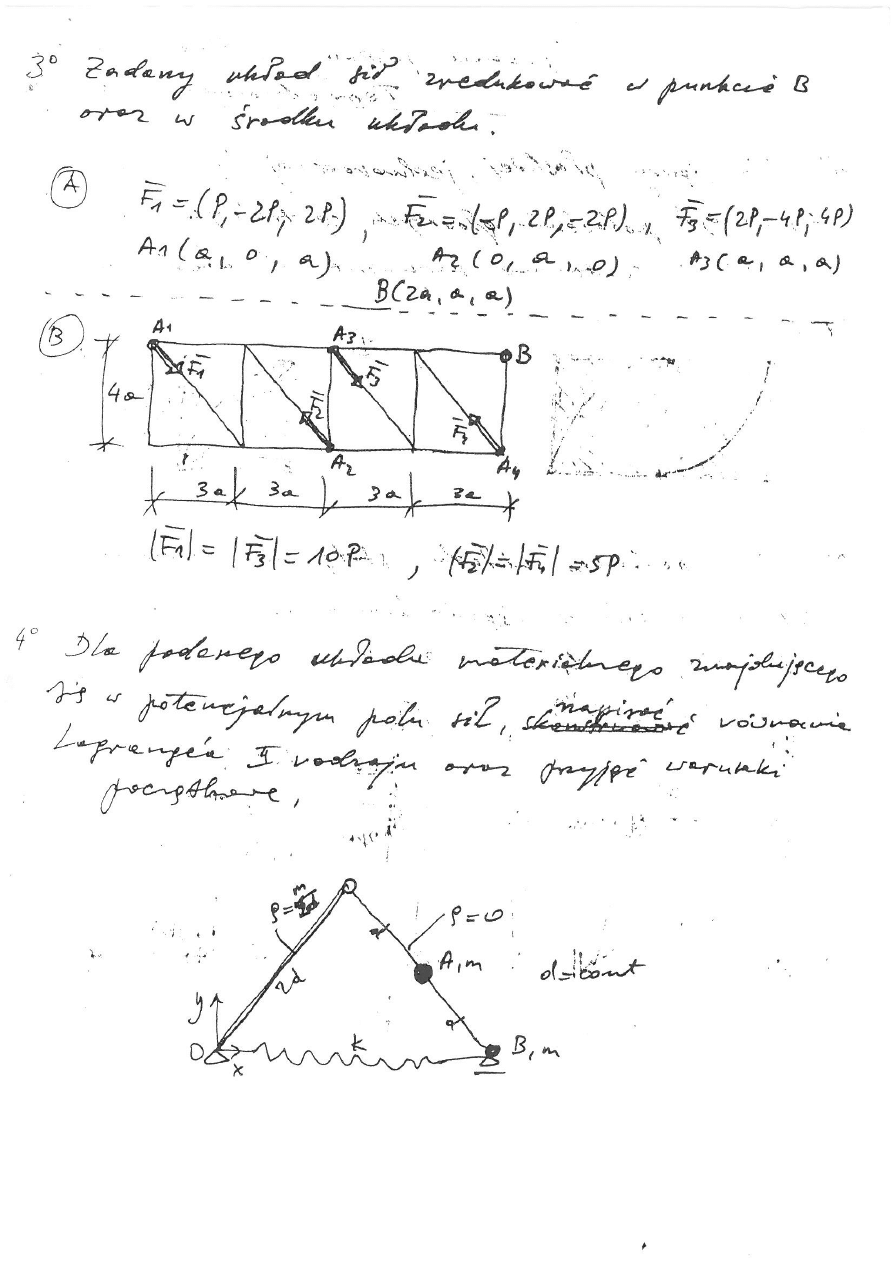 3° Zadany układ sił zredukować w punkcie B
oraz w środku układu.
A
F̄1 = (P, -2P, 2P), F̄2 = (-P, 2P, -2P), F̄3 = (2P, -4P, 4P)
A1 (a, 0, a) A2 (0, a, 0) A3 (a, a, a)
B(2a, a, a)
B
A1 A3 B
F̄1 F̄2 F̄3
4a
A2 A4
3a 3a 3a 3a
|F̄1| = |F̄3| = 10P, |F̄2| = |F̄4| = 5P
4° Dla podanego układu materialnego znajdującego
się w potencjalnym polu sił, napisać równania
Lagrange'a II rodzaju oraz przyjąć warunki
początkowe,
ρ=0
A, m d=const
2d
y
O x k B, m